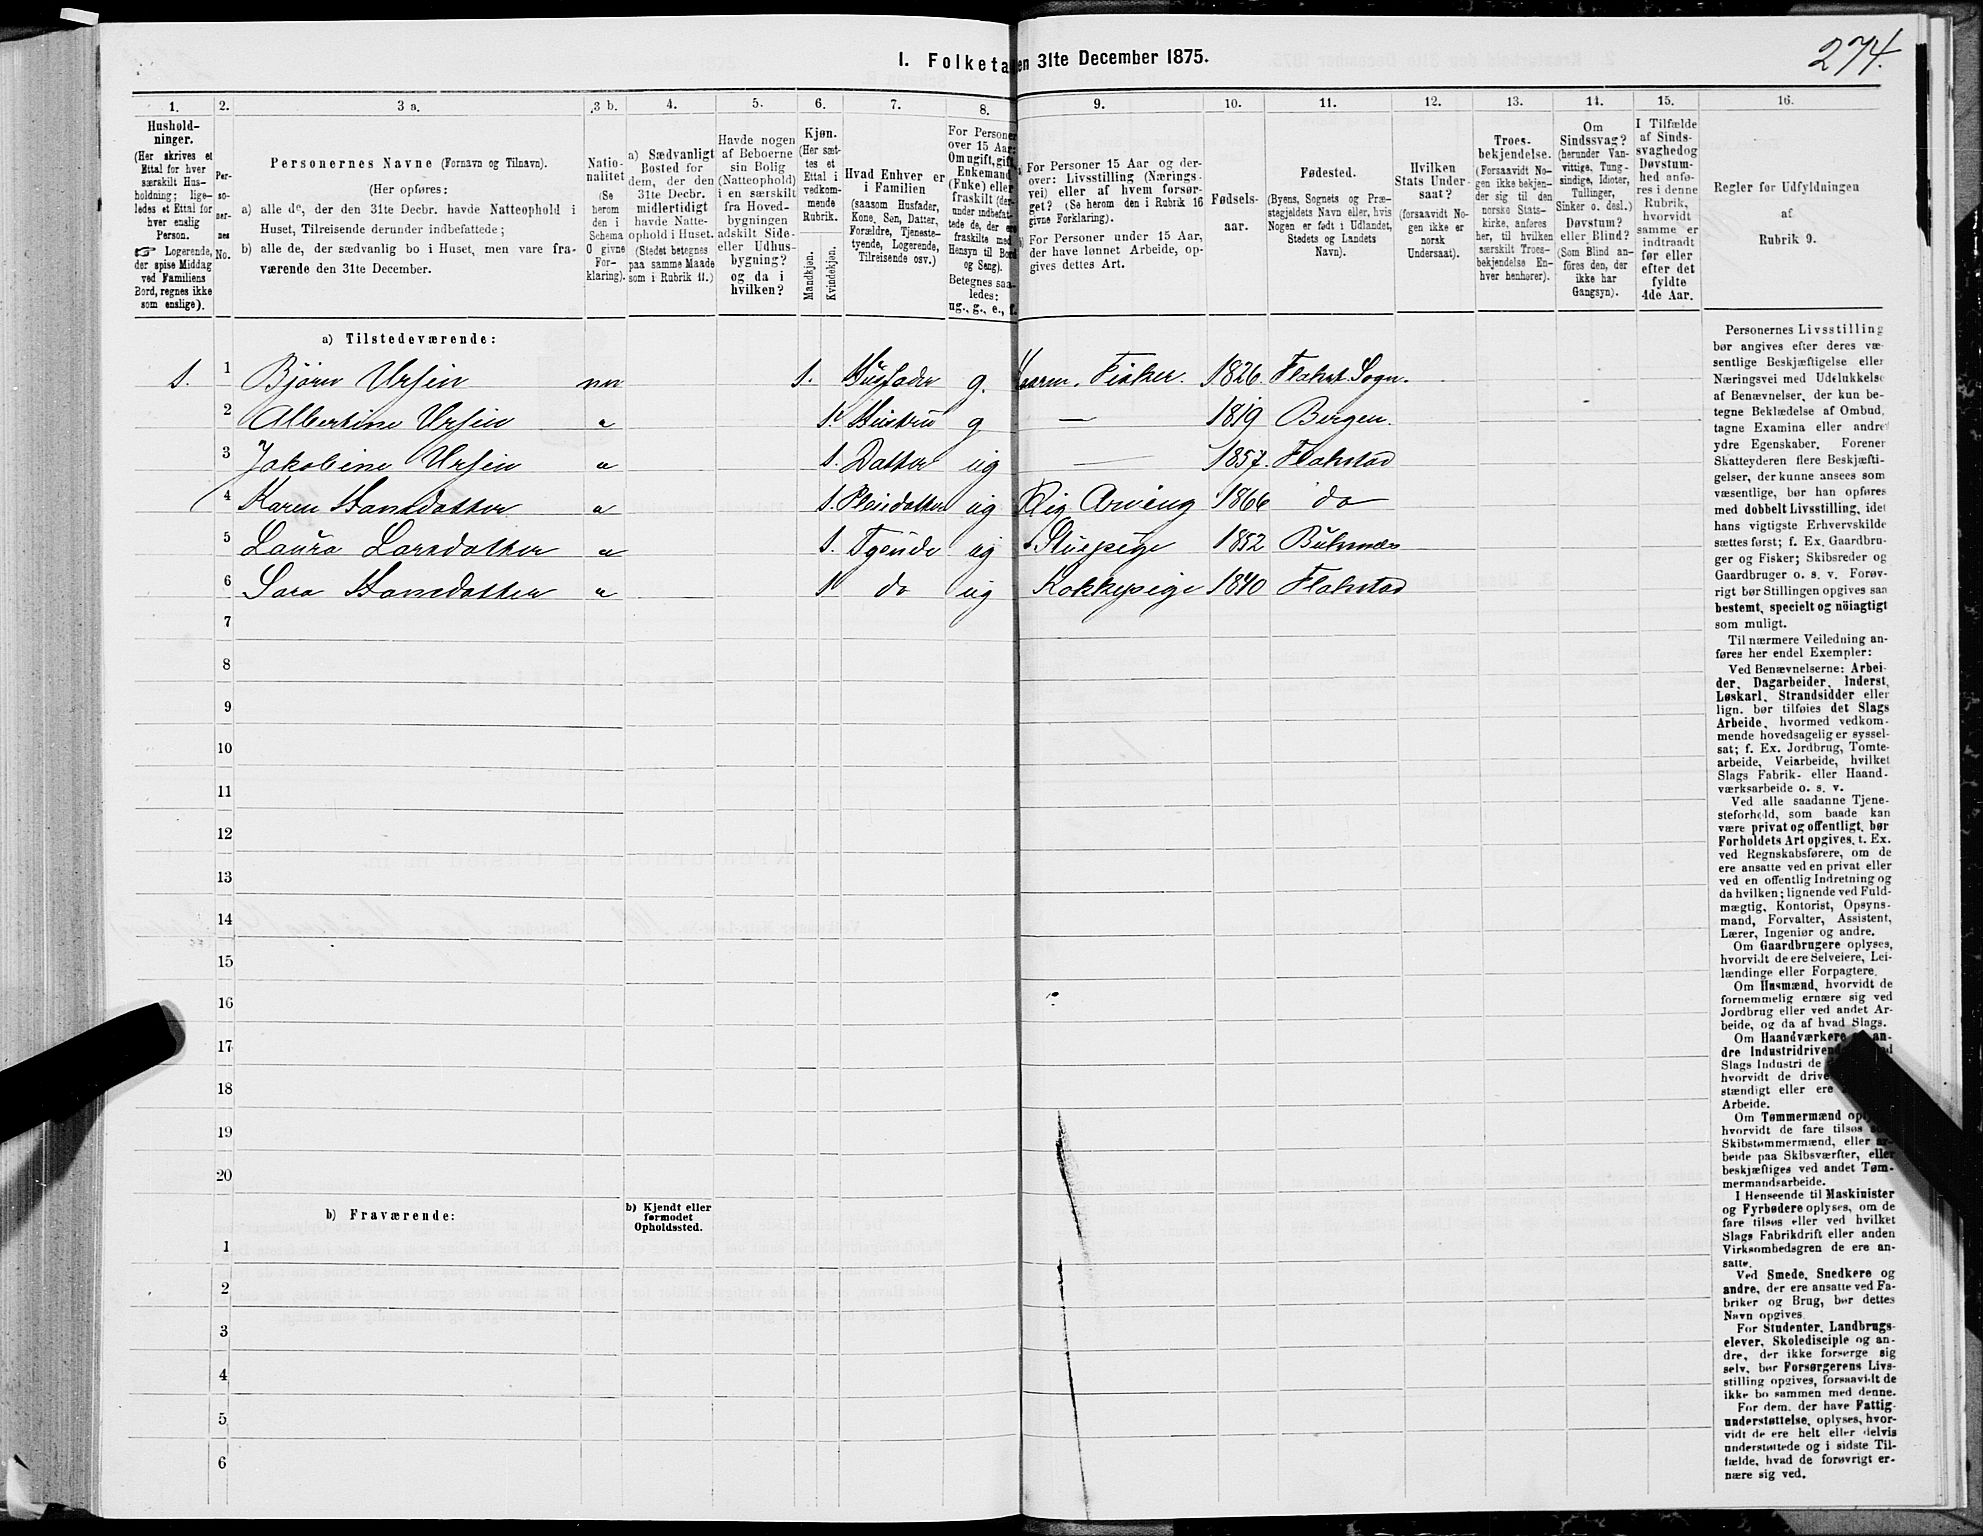 274.
I. Folketa en 31te December 1875.
1. 2. 3 a. 3 b. 4. 5. 6. 7. 8. 9. 10. 11. 12. 13. 14. 15. 16.
Hushold-
ninger.
(Her skrives et
Ettal for hver
særskilt Hus-
holdning; lige-
ledes et Ettal for
hver enslig
Person.
☞ Logerende,
der spise Middag
ved Familiens
Bord, regnes ikke
som enslige).
Per-
so-
ner-
nes
No.
Personernes Navne (Fornavn og Tilnavn).
(Her opføres:
a) alle de, der den 31te Decbr. havde Natteophold i
Huset, Tilreisende derunder indbefattede;
b) alle de, der sædvanlig bo i Huset, men vare fra-
værende den 31te December.
Natio-
nalitet
(Se
herom
den i
Schema
O givne
For-
klaring).
a) Sædvanligt
Bosted for
dem, der den
31te Decbr.
midlertidigt
havde Natte-
ophold i Huset.
(Stedet betegnes
paa samme Maade
som i Rubrik 11.)
Havde nogen
af Beboerne
sin Bolig
(Natteophold)
i en særskilt
fra Hoved-
bygningen
adskilt Side-
eller Udhus-
bygning?
og da i
hvilken?
Kjøn.
(Her sæt-
tes et
Ettal i
vedkom-
mende
Rubrik.
Mandkjøn.
Kvindekjøn.
Hvad Enhver er
i Familien
(saasom Husfader,
Kone, Søn, Datter,
Forældre, Tjeneste-
tyende, Logerende,
Tilreisende osv.)
For Personer
over 15 Aar:
Om ugift, gift,
Enkemand
(Enke) eller
fraskilt (der-
under indbefat-
tede de, der ere
fraskilte med
Hensyn til Bord
og Seng).
Betegnes saa-
ledes:
ug., g., e., f.
For Personer 15 Aar og der-
over: Livsstilling (Nærings-
vei) eller af hvem forsør-
get? (Se herom den i Rubrik 16
givne Forklaring).
For Personer under 15 Aar,
der have lønnet Arbeide, op-
gives dettes Art.
Fødsels-
aar.
Fødested.
(Byens, Sognets og Præ-
stegjeldets Navn eller, hvis
Nogen er født i Udlandet,
Stedets og Landets
Navn).
Hvilken
Stats Under-
saat?
(forsaavidt No-
gen ikke er
norsk
Undersaat).
Troes-
bekjendelse.
(Forsaavidt No-
gen ikke bekjen-
der sig til den
norske Stats-
kirke, anføres
her, til hvilken
særskilt Troes-
bekjendelse En-
hver henhører).
Om
Sindssvag?
(herunder Van-
vittige, Tung-
sindige, Idioter,
Tullinger,
Sinker o. desl.)
Døvstum?
eller Blind?
(Som Blind an-
føres den, der
ikke har
Gangsyn).
I Tilfælde
af Sinds-
svaghed og
Døvstum-
hed anfø-
res i denne
Rubrik,
hvorvidt
samme er
indtraadt
før eller
efter det
fyldte
4de Aar.
Regler for Udfyldningen
af
Rubrik 9.
a) Tilstedeværende:
1. 1 Bjørn Ursin nn 1. Husfader g. Fisker. 1826 Flakst. Sogn.
2 Albertine Ursin " 1 Hustru g — 1819 Bergen.
3 Jakobine Ursin " 1. Datter ug — 1857. Flakstad
4 Karen Hansdatter " 1. Pleiedatter ug Rig Arving 1866 do
5 Laura Larsdatter " 1. Tyende ug Stuepige 1852 Buksnes
6 Sara Hansdatter " 1 do ug Kokkepige 1840 Flakstad
7
8
9
10
11
12
13
14
15
16
17
18
19
20
b) Fraværende:
b) Kjendt eller
formodet
Opholdssted.
1
2
3
4
5
6
Personernes Livsstilling
bør angives efter deres væ-
sentlige Beskjæftigelse eller
Næringsvei med Udelukkelse
af Benævnelser, der kun be-
tegne Beklædelse af Ombud,
tagne Examina eller andre
ydre Egenskaber. Forener
Skatteyderen flere Beskjæfti-
gelser, der kunne ansees som
væsentlige, bør han opføres
med dobbelt Livsstilling, idet
hans vigtigste Erhvervskilde
sættes først; f. Ex. Gaardbru-
ger og Fisker; Skibsreder og
Gaardbruger o. s. v. Forøv-
rigt bør Stillingen opgives saa
bestemt, specielt og nöiagtigt
som muligt.
Til nærmere Veiledning an-
føres her endel Exempler:
Ved Benævnelserne: Arbei-
der, Dagarbeider, Inderst,
Løskarl, Strandsidder eller
lign. bør tilføies det Slags
Arbeide, hvormed vedkom-
mende hovedsagelig er syssel-
sat; f. Ex. Jordbrug, Tomte-
arbeide, Veiarbeide, hvilket
Slags Fabrik- eller Haand-
værksarbeide o. s. v.
Ved alle saadanne Tjene-
steforhold, som baade kan
være privat og offentligt, bør
Forholdets Art opgives, t. Ex.
ved Regnskabsførere, om de
ere ansatte ved en privat eller
ved en offentlig Indretning og
da hvilken; lignende ved Fuld-
mægtig, Kontorist, Opsyns-
mand, Forvalter, Assistent,
Lærer, Ingeniør og andre.
Om Gaardbrugere oplyses,
hvorvidt de ere Selveiere, Lei-
lændinge eller Forpagtere.
Om Husmænd, hvorvidt de
fornemmelig ernære sig ved
Jordbrug eller ved andet Ar-
beide, og da af hvad Slags.
Om Haandværkere an-
dre Industridrivend
Slags Industri de
hvorvidt de drive
stændigt eller ere
Arbeide.
Om Tømmermænd
hvorvidt de fare tilsøs
Skibstømmermænd, eller ar-
beide paa Skibsværfter, eller
beskjæftiges ved andet Tøm-
mermandsarbeide.
I Henseende til Maskinister
og Fyrbødere oplyses, om de
fare tilsøs eller ved hvilket
Slags Fabrikdrift eller anden
Virksomhedsgren de ere an-
satte.
Ved Smede, Snedkere og
andre, der ere ansatte ved Fa-
briker og Brug, bør dettes
Navn opgives.
For Studenter, Landbrugs-
elever, Skoledisciple og an-
dre, der ikke forsørge sig
selv, bør Forsørgerens Livs-
stilling opgives, forsaavidt de
ikke bo sammen med denne.
For dem, der have Fattig-
understøttelse, oplyses, hvor-
vidt de ere helt eller delvis
understøttede og i sidste Til-
fælde, hvad de forøvrigt er-
nære sig ved.